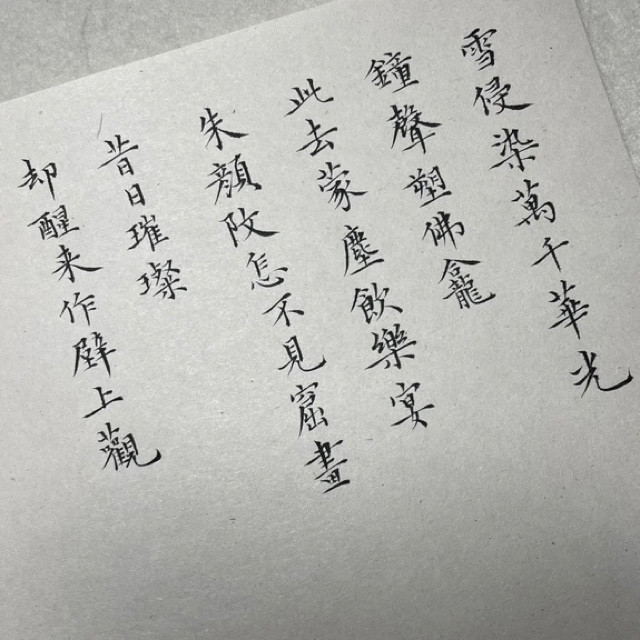 雪侵染萬千華光
鐘聲塑佛龕
此去蒙塵飲樂宴
朱顏改怎不見窟畫
昔日璀璨
却醒来作壁上觀